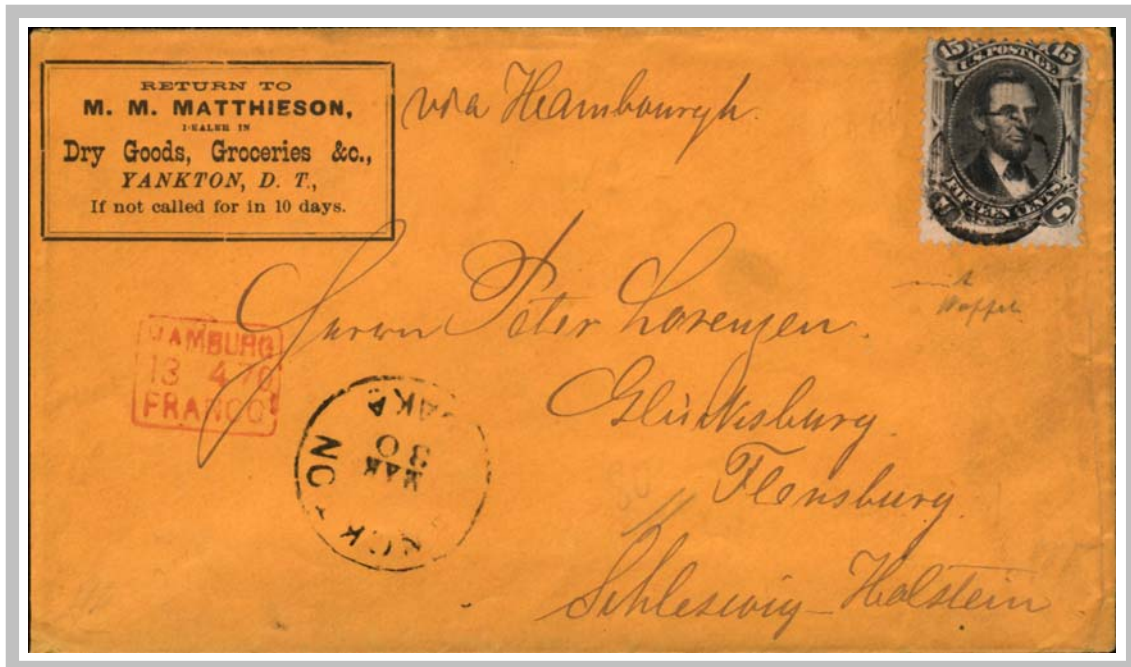 RETURN TO
M. M. MATTHIESON,
DEALER IN
Dry Goods, Groceries &c.,
YANKTON, D. T.,
If not called for in 10 days.
via Hambourgh.
15 15
U.S. POSTAGE
FIFTEEN CENTS
U S
Waffel
Herrn Peter Lorenzen.
Glücksburg.
Flensburg.
Schleswig-Holstein
HAMBURG
13 4 70
FRANCO
MAR
30